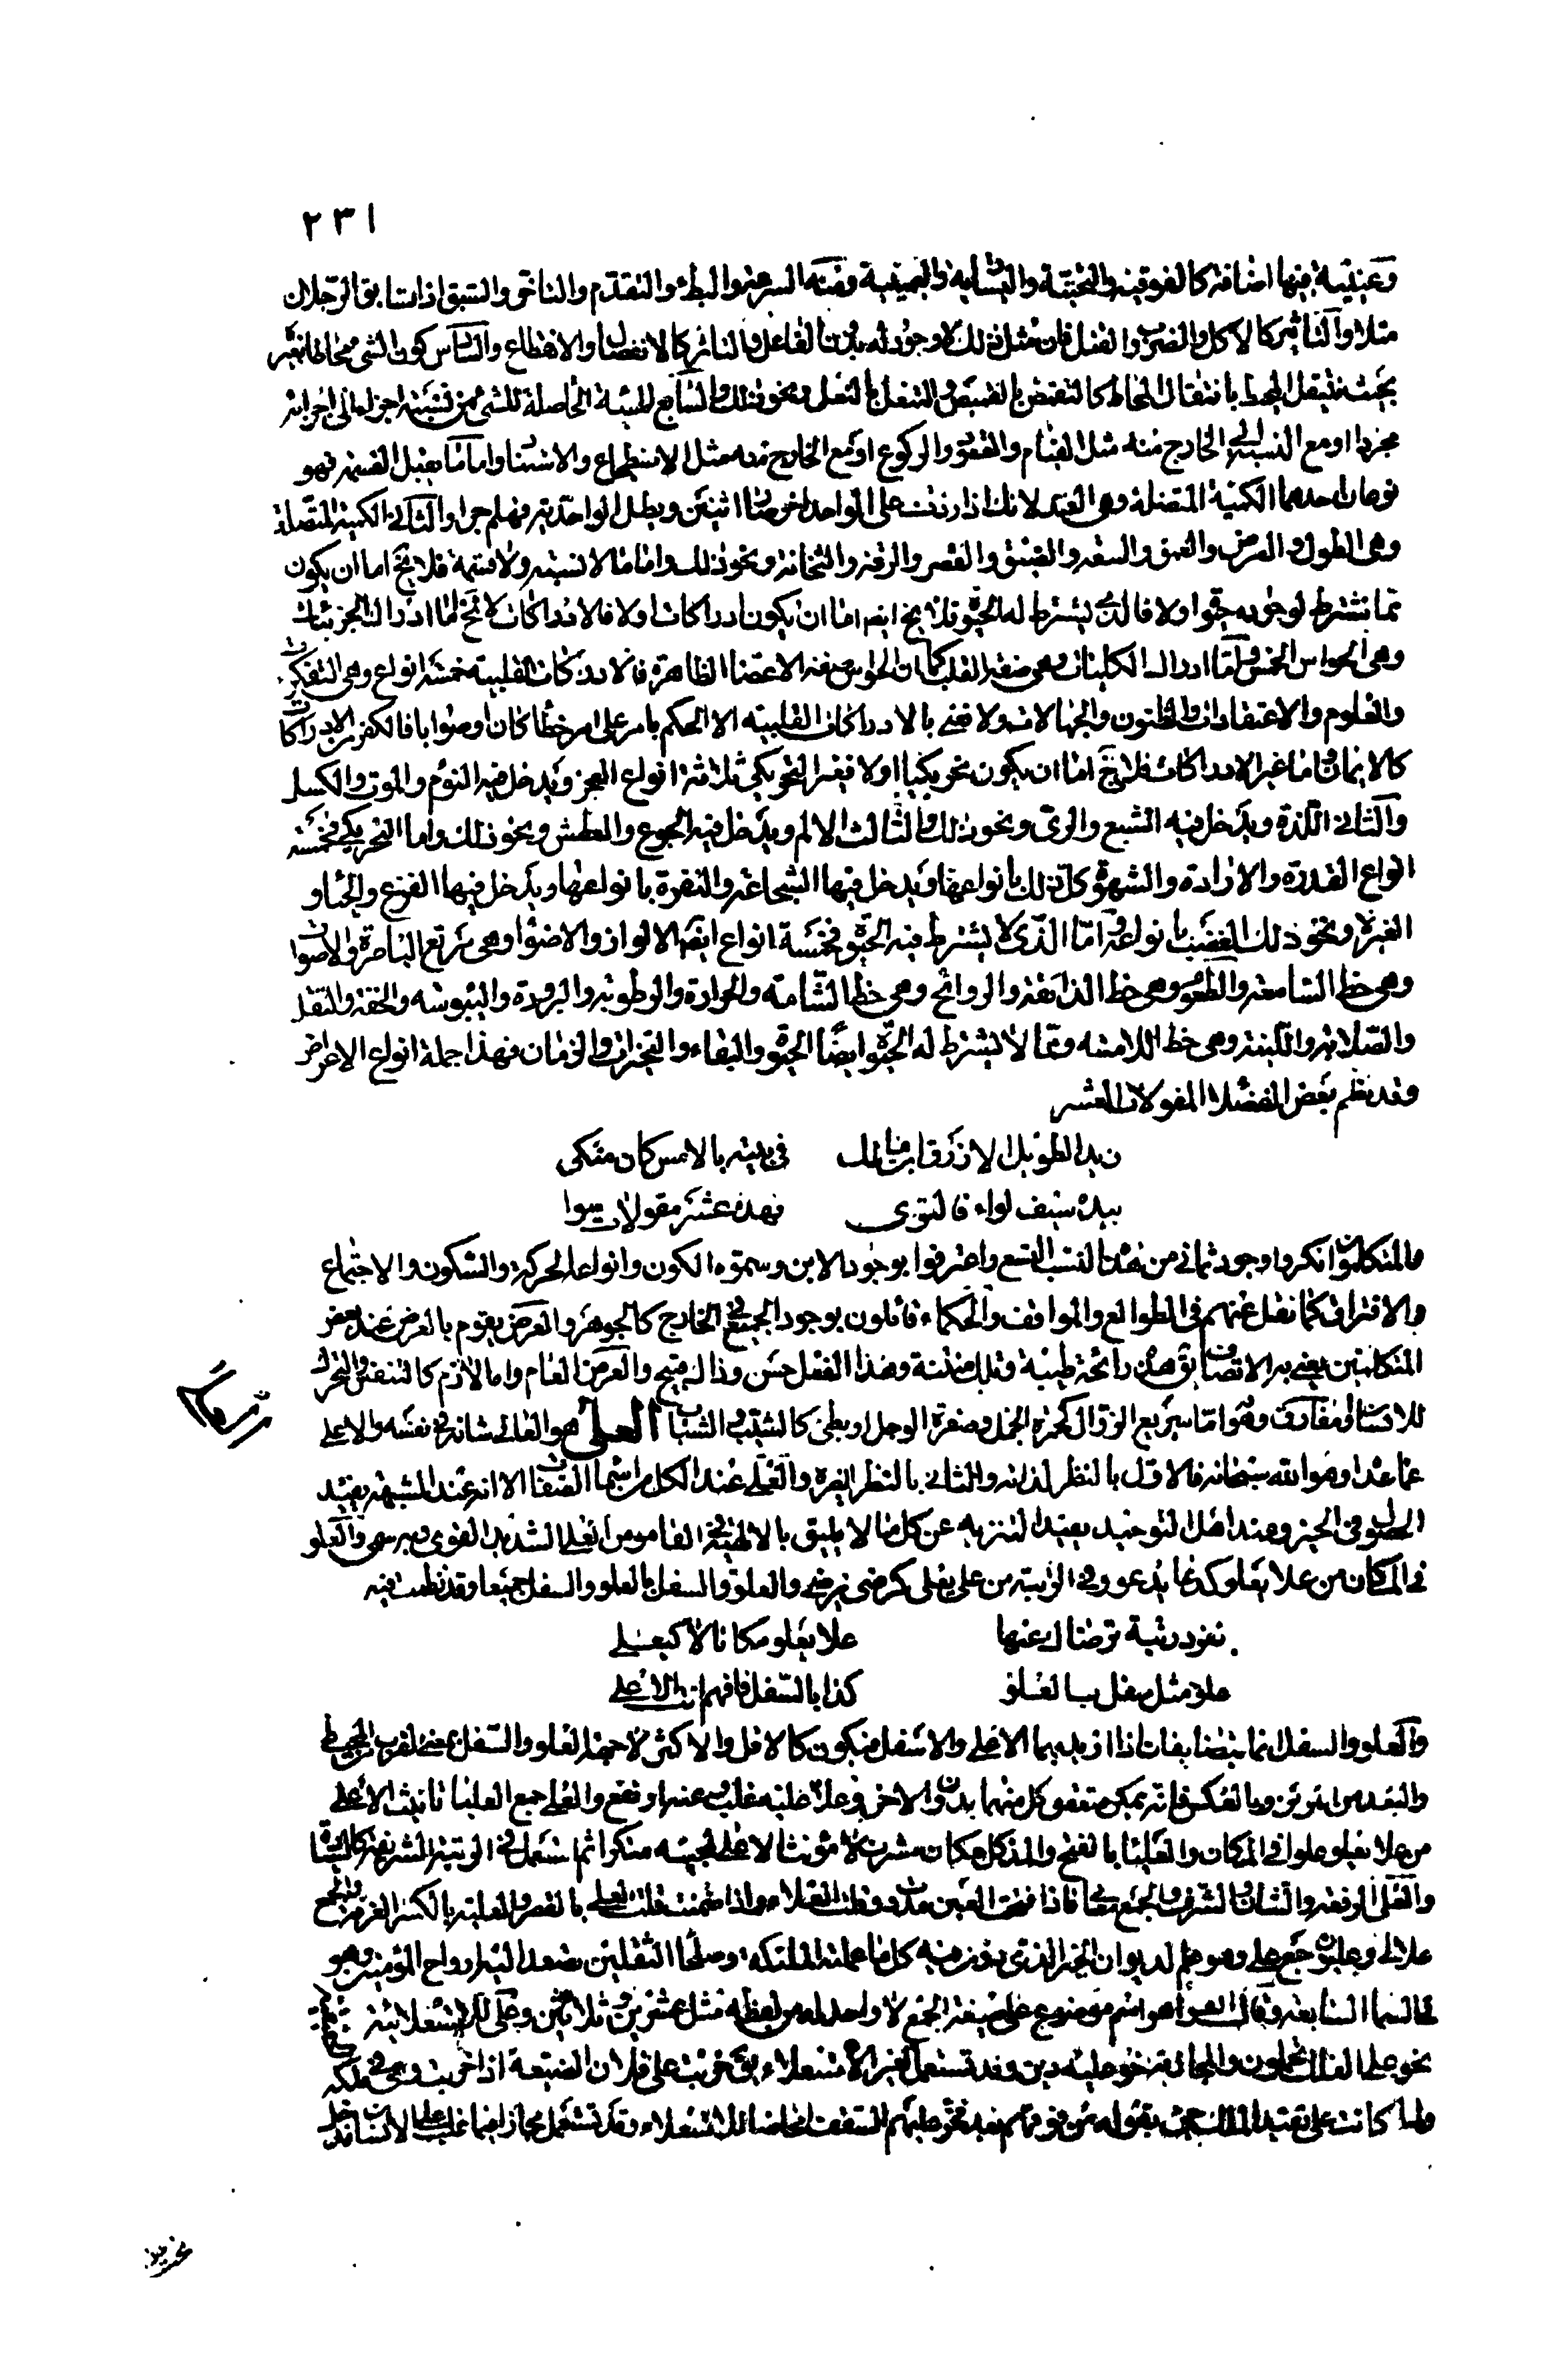 ٢٣١
وعينية فيها اضافة كالفوقية والتحتية واليسارية واليمينية ومنه السرعة والبطؤ والتقدم والتأخر والسبق اذا تسابق الرجلان
مثلا والتأثير كالاكل والضرب والقتل فان مثل ذلك لا وجود له بدون الفاعل والتأثر كالانفصال والانقطاع والسادس كون الشئ محاطا بغيره
بحيث ينتقل المحيط بانتقال المحاط كالتقمص بالقميص والتنعل بالنعل ونحو ذلك والسابع الهيئة الحاصلة للشئ من نسبة اجزائه الى اجزائه
مجردا او مع النسبة الى الخارج منه مثل القيام والقعود والركوع او مع الخارج منه مثل الاضطجاع والاستناد واما ما يقبل القسمة فهو
نوعان احدهما الكمية المنفصلة وهى العدد لانك اذا زدت على الواحد اخر صار اثنين وبطل الواحدية فهلم جرا والثانى الكمية المتصلة
وهى الطول والعرض والعمق والسعة والضيق والقصر والرقة والثخانة ونحو ذلك واما ما لا نسبة ولا قسمة فلا يخ اما ان يكون
مما تشترط لوجوده حيوة اولا فالذى يشترط له الحيوة فلا يخ ايضا اما ان يكون ادراكات اولا فالادراكات لا تخ اما ادراك الجزئيات
وهى الحواس الخمس واما ادراك الكليات وهى صفة القلب كما ان الحواس صفة الاعضا الظاهرة فالادراكات القلبية خمسة انواع وهى التفكرات
والعلوم والاعتقادات والظنون والجهالات ولا نعنى بالادراكات القلبية الا الحكم بامر على امر خطأ كان او صوابا فالكفر من الادراكات
كالايمان واما غير الادراكات فلا يخ اما ان يكون تحريكيا اولا فغير التحريكى ثلاثة انواع العجز ويدخل فيه النوم والموت والكسل
والثانى اللذة ويدخل فيه الشبع والرى ونحو ذلك والثالث الالم ويدخل فيه الجوع والعطش ونحو ذلك واما التحريكى فخمسة
انواع القدرة والارادة والشهوة كل ذلك بانواعها ويدخل فيها الشجاعة والنفرة بانواعها ويدخل فيها الفزع والحيا و
الغيرة ونحو ذلك والغضب بانواعه واما الذى لا يشترط فيه الحيوة فخمسة انواع ايضا الالوان والاضوا وهى مرتع الباصرة والاصوات
وهى حظ السامعة والطعوم وهى حظ الذائقة والروائح وهى حظ الشامة والحرارة والرطوبة والبرودة واليبوسة والخفة والثقل
والصلابة واللينة وهى حظ اللامسة ومما لا يشترط له الحيوة ايضا الحيوة والبقاء والتحيزات والزمان فهذا جملة انواع الاعراض
وقد نظم بعض الفضلا المقولات العشر
زيد الطويل الازرق ابن مالك في بيته بالامس كان متكى
بيده سيف لواه فالتوى فهذه عشر مقولات سوا
فالمتكلمون انكروا وجود ثمانى من هذه النسب التسع واعترفوا بوجود الاين وسموه الكون وانواعه الحركة والسكون والاجتماع
والافتراق كما نقل عنهم فى الطوالع والمواقف والحكماء قائلون بوجود الجميع فى الخارج كالجوهر والعرض يقوم بالعرض عند بعض
المتكلمين يعنى به الاتصاف يق هذه رائحة طيبة وتلك منتنة وهذا الفعل حسن وذاك قبيح والعرض العام واما لازم كالتنفس والتحرك
للانسان او مفارق وهو اما سريع الزوال كحمرة الخجل وصفرة الوجل او بطئ كالشيب والشباب العلى هو العالى شانه فى نفسه والاعلى
عما عداه وهو الله سبحانه فالاول بالنظر لذاته والثانى بالنظر لغيره والعلى عند الكل من اسما الصفات الا انه عند المشبهة يفيد
الحصول فى الحيز وعند اهل التوحيد يفيد التنزيه عن كل ما لا يليق بالالهية فى القاموس العلى الشديد القوى وبه سمى والعلو
فى المكان من علا يعلو كدعا يدعو وفى الرتبة من على يعلى كرضى يرضى والعلو والسفل بالعلو والسفل جميعا وقد نظمت فيه
علا يعلو مكانا لا كيعلى
علو مثل سفل بالعلو كذا بالسفل فافهم انت الاعلى
والعلو والسفل انما يتضايفان اذا اريد بهما الاعلى والاسفل فيكون كالاقل والاكثر لا جهة العلو والسفل اعنى القرب من المحيط
من علا يعلو علوا فى المكان والعليا بالفتح والمد كل مكان مشرف لا مؤنث الاعلى لمجيئه منكرا ثم استعمل فى الرتبة الشريفة
علالى وعليون جمع على وهو علم لديوان الخير الذى يدون فيه كل ما عملته الملئكة وصلحا الثقلين تصعد اليه ارواح المؤمنين وهو
فى السما السابعة وقال الفرا هو اسم موضوع على صيغة الجمع لا واحد له من لفظه مثل عشرين وثلاثين وعلى للاستعلا